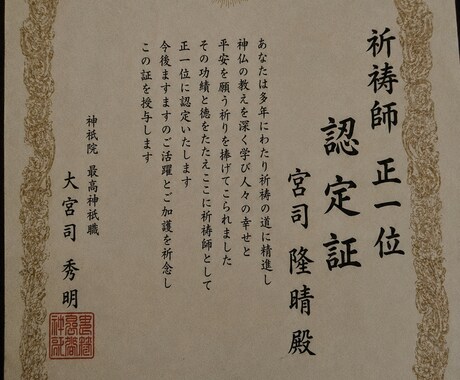 祈祷師 正一位
認定証
宮司 隆晴 殿
あなたは多年にわたり祈祷の道に精進し
神仏の教えを深く学び人々の幸せと
平安を願う祈りを捧げてこられました
その功績と徳をたたえここに祈祷師として
正一位に認定いたします
今後ますますのご活躍とご加護を祈念し
この証を授与します
神祇院 最高神祇職
大宮司 秀明